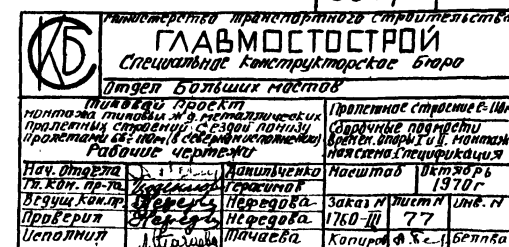 Министерство транспортного строительства
СКБ
ГЛАВМОСТОСТРОЙ
Специальное Конструкторское бюро
Отдел Больших мостов
Типовой проект
монтажа типовых ж.д. металлических
пролетных строений с ездой понизу
пролетами 66÷110м, (в северном исполнении)
Рабочие чертежи
Пролетное строение ℓ=110м
Сборочные подмости
времен. опоры I и II. монтаж
ная схема. Спецификация
Нач. отдела Данильченко Масштаб Октябрь
Гл. кон. пр-та Герасимов 1970г
Ведущ. кон. пр. Нефедова Заказ N Лист N Инв. N
Проверил Нефедова 1760-III 77
Исполнил Мачаева Копиров. Беляева